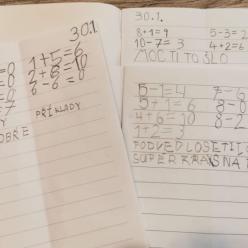 30.1.
1+5=6
2+8=10
6-6=0
PŘÍKLADY
30.1.
8+1=9
5-3=2
10-7=3
4+2=6
MOC TI TO ŠLO
5-1=4
7-6
5+1=6
8-6
4+6=10
8-2
1+2=3
PODVEDLO SE TI
SUPER KRÁSNÁ